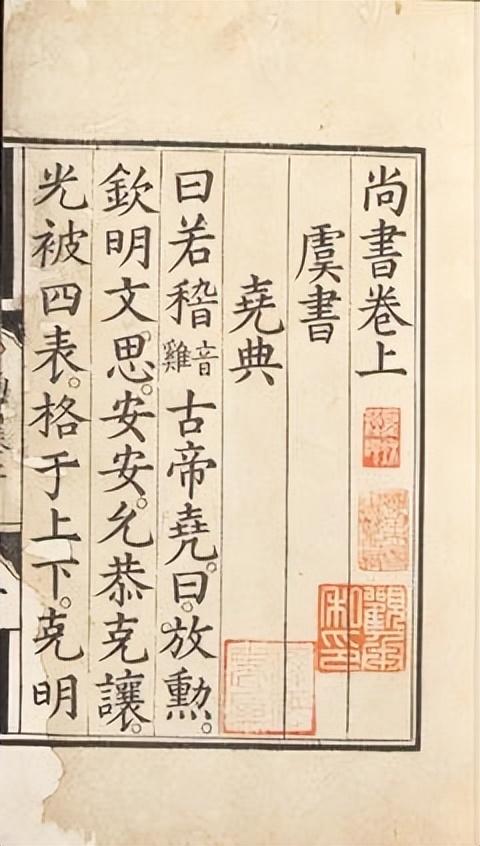 尚書卷上
虞書
堯典
曰若稽音雞古帝堯。曰。放勳。
欽明文思。安安。允恭克讓。
光被四表。格于上下。克明